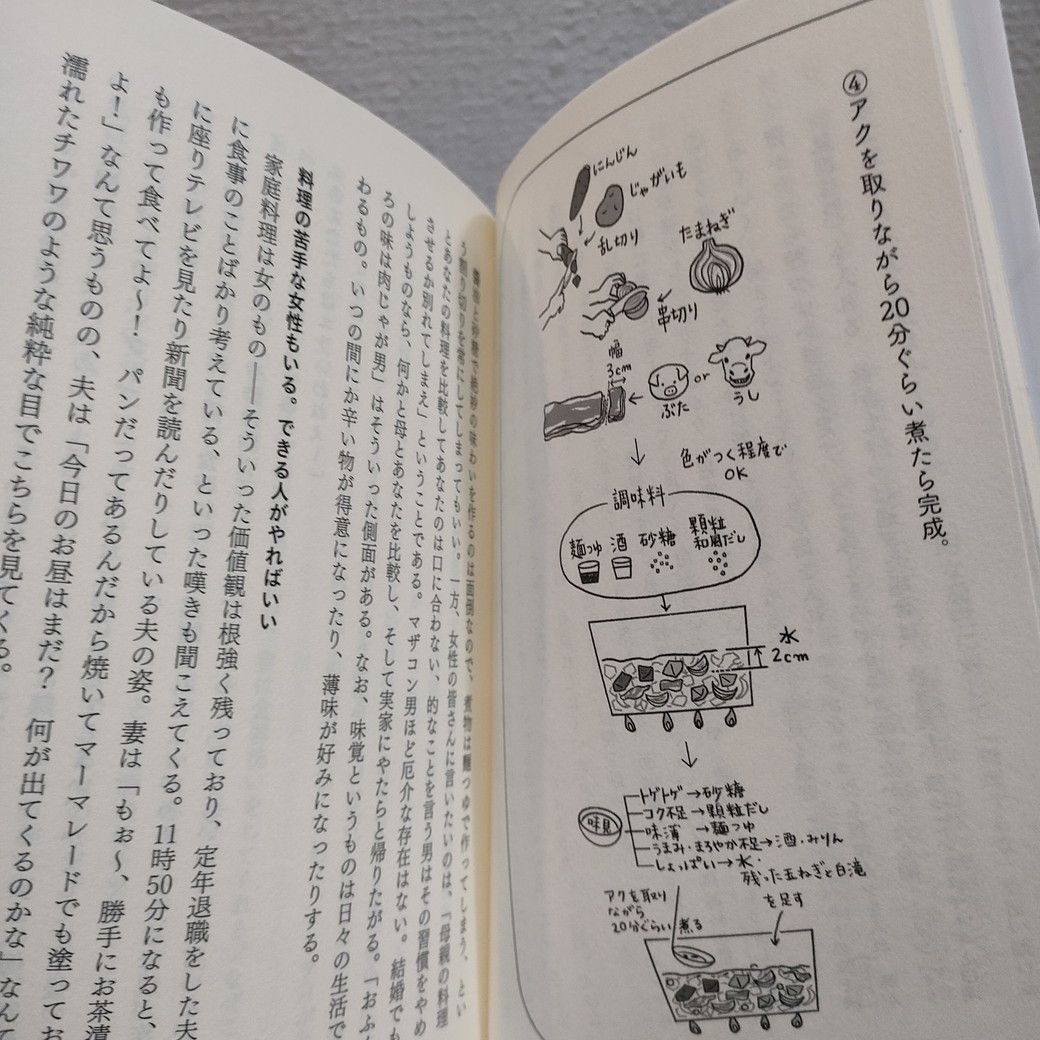 ④アクを取りながら20分ぐらい煮たら完成。
にんじん
じゃがいも
乱切り
たまねぎ
串切り
幅
3cm
ぶた
or
うし
色がつく程度で
OK
調味料
麺つゆ
酒
砂糖
顆粒
和風だし
水
2cm
味見
トゲトゲ→砂糖
コク不足→顆粒だし
味薄→麺つゆ
うまみ・まろやか不足→酒・みりん
しょっぱい→水・
残った玉ねぎと白滝
を足す
アクを取り
ながら
20分ぐらい煮る
と砂糖で絶妙の味わいを作るのは面倒なので、煮物は麺つゆで作ってしまう、とい
う割り切りを常にしてしまってもいい。一方、女性の皆さんに言いたいのは、「母親の料理
とあなたの料理を比較してあなたのは口に合わない、的なことを言う男はその習慣をやめ
させるか別れてしまえ」ということである。マザコン男ほど厄介な存在はない。結婚でも
しようものなら、何かと母とあなたを比較し、そして実家にやたらと帰りたがる。「おふく
ろの味は肉じゃが男」はそういった側面がある。なお、味覚というものは日々の生活で
わるもの。いつの間にか辛い物が得意になったり、薄味が好みになったりする。
料理の苦手な女性もいる。できる人がやればいい
家庭料理は女のもの――そういった価値観は根強く残っており、定年退職をした夫
に食事のことばかり考えている、といった嘆きも聞こえてくる。11時50分になると、
に座りテレビを見たり新聞を読んだりしている夫の姿。妻は「もぉ～、勝手にお茶漬
も作って食べてよ～！　パンだってあるんだから焼いてマーマレードでも塗ってお
よ！」なんて思うものの、夫は「今日のお昼はまだ？　何が出てくるのかな」なんて
濡れたチワワのような純粋な目でこちらを見てくる。